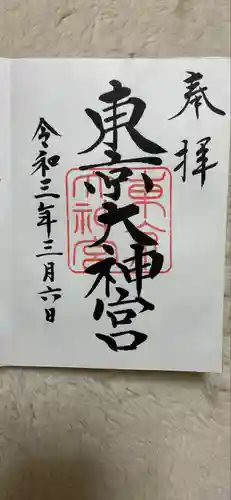 奉拝
東京大神宮
令和三年三月六日
東京大神宮